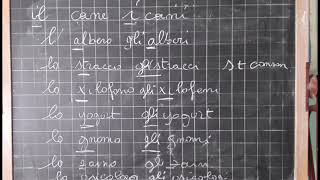 il cane i cani
l' albero gli alberi
lo straccio gli stracci st conson
lo xilofono gli xilofoni
lo yogurt gli yogurt
lo gnomo gli gnomi
lo zaino gli zaini
lo psicologo gli psicologi